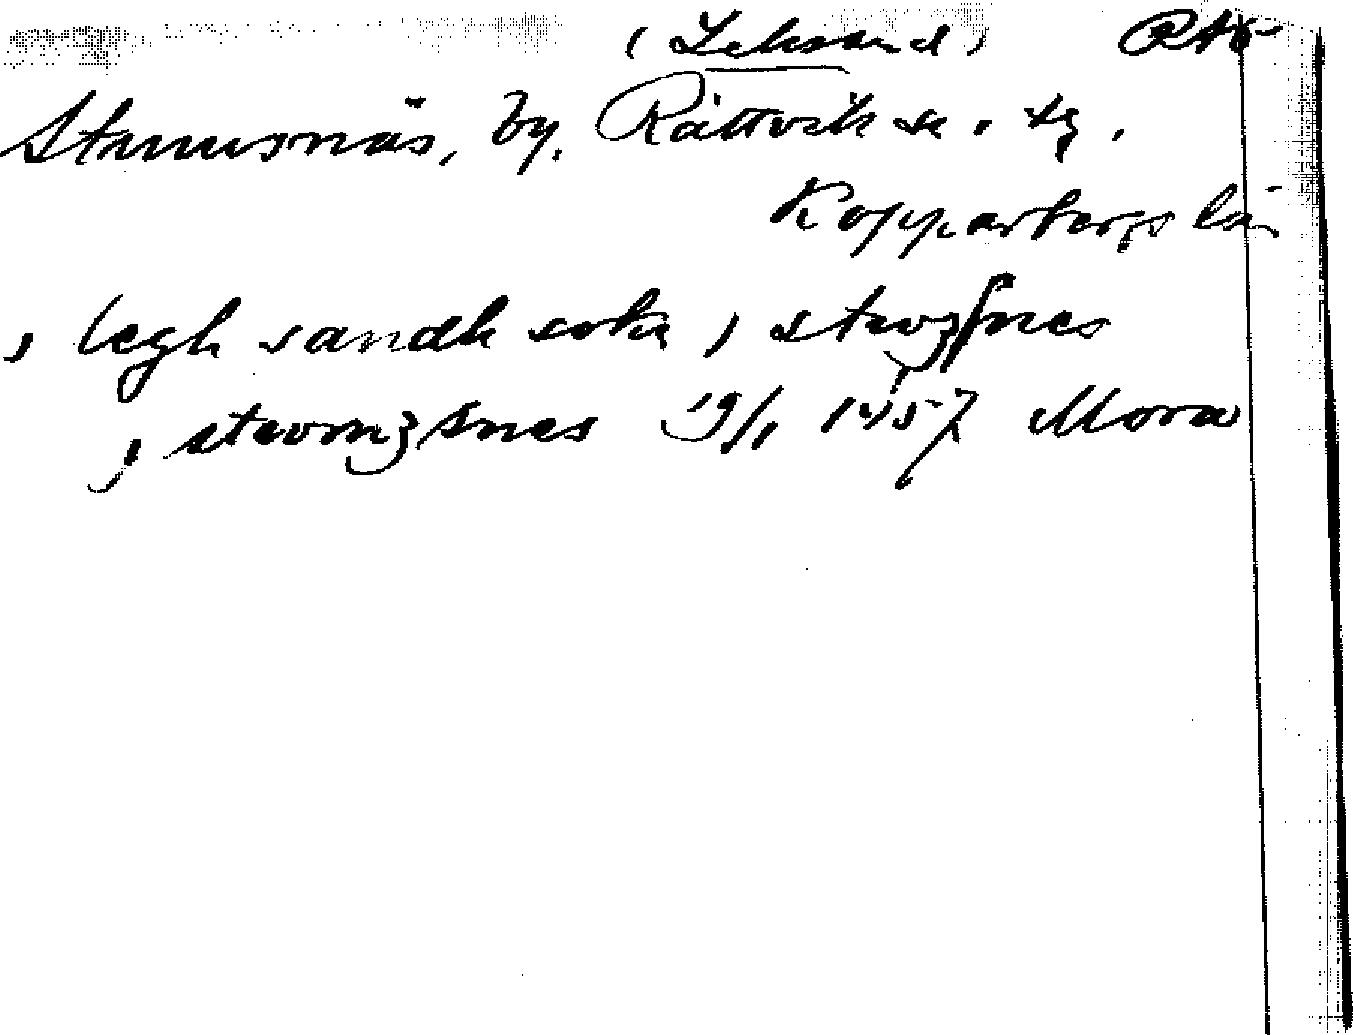 (Leksand) RA0
Stumsnäs, by. Rättvik sn. tg.
Kopparbergs län
, legh sandh sokn , stwzsnes
, stwmzsnes 19/1 1457 Mora